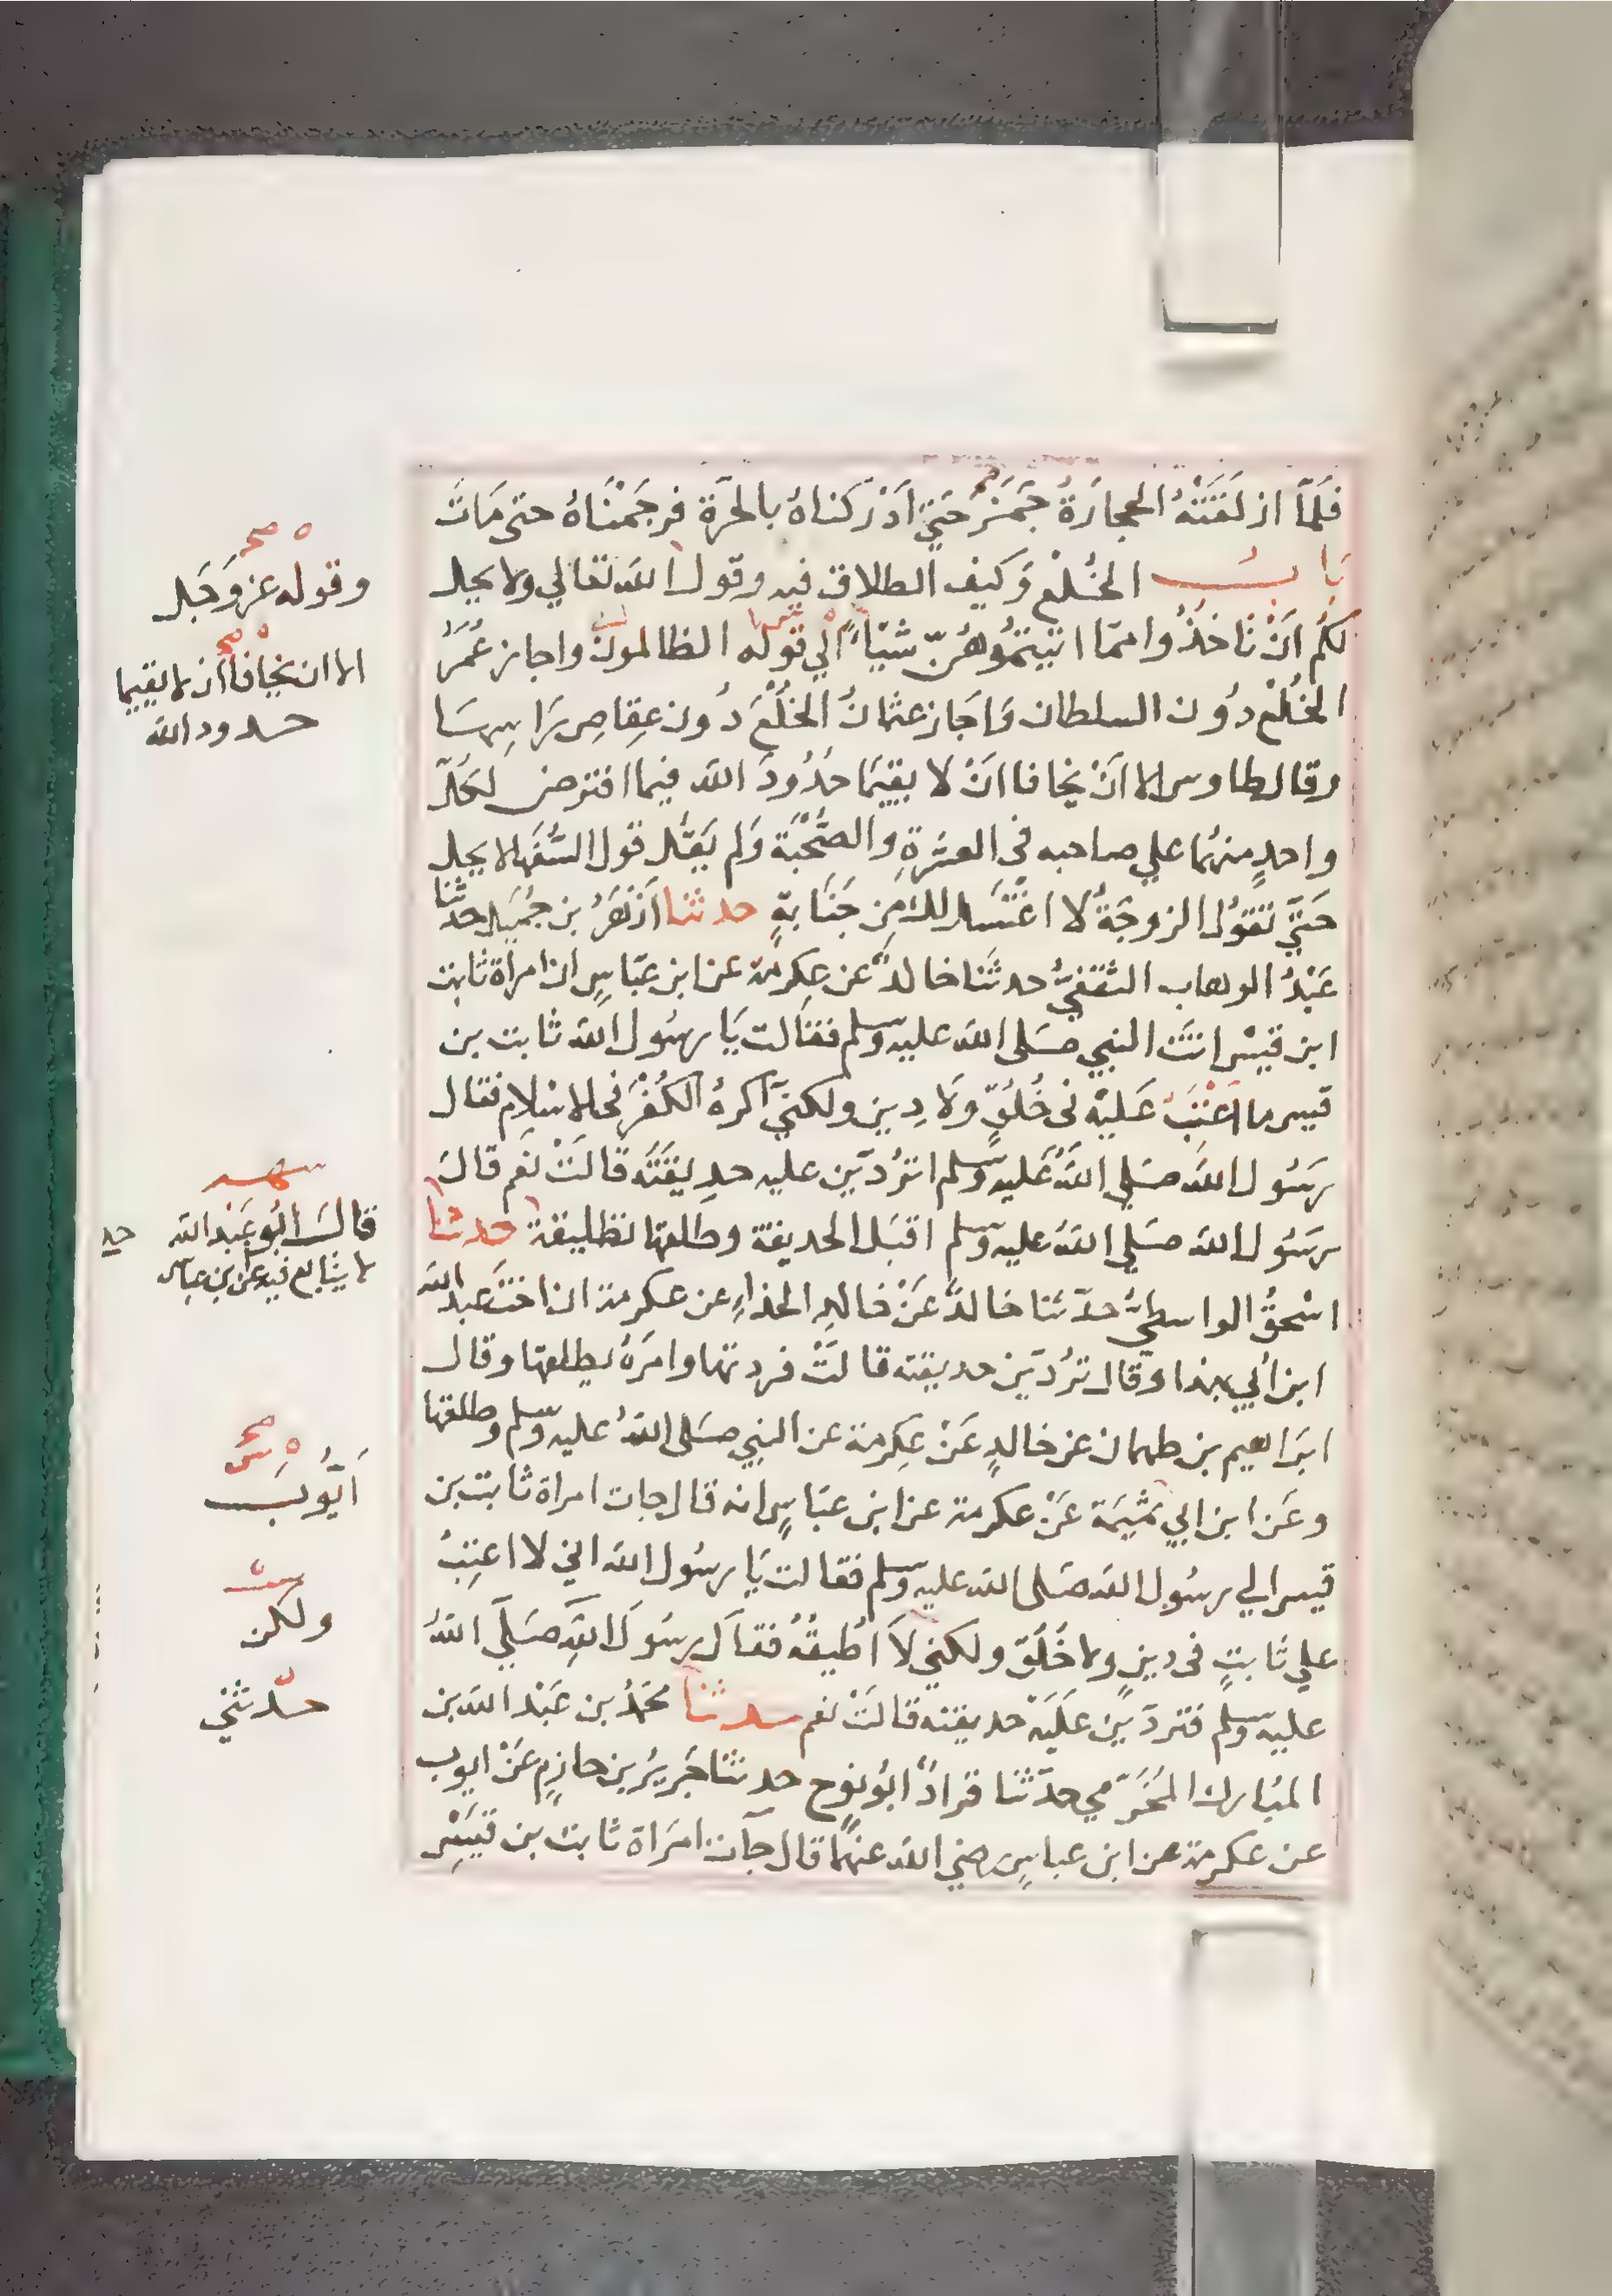 فَلَمَّا اذلَقَتْهُ الحِجَارَةُ جَمَزَ حَتَّىٰ اَدْرَكنَاهُ بالحَرَّة فرجَمْنَاهُ حتى مَاتَ
بَابُ الخُلْع وَكيف الطلاق فيه وقول الله تعَالي ولا يحل
لكُم اَنْ تَاخذُوا ممّا اتيتمُوُهُنّ شيْأً الي قوله الظالمونَ واجاز عُمَرُ
الخُلْعَ دُون السلطان وَاجَاز عثمانُ الخُلْعَ دُون عِقاصِ رَاسِهَا
وقال طاوس الا اَنْ يخافا انْ لا يقيمَا حُدُودَ الله فيما افترض لكلّ
واحدٍ منهُما علي صاحبه في العشرةِ والصُّحْبَة وَلم يَقُل قول السُّفَهَا لا يحل
حَتّىٰ تقولُ الزوجَةُ لا اغْتَسل لك مِن جَنَابةٍ حدثنا اَزْهَرُ بن جُمَيل حدثنا
عَبْدُ الوهاب الثقفيُّ حدثنَا خالدٌ عن عِكرمة عن ابن عبّاسٍ ان امراة ثابت
ابن قيسْ اتَت النبي صَلى الله عليه وسلم فقالت يَا رسُول الله ثابت بن
قيس ما اَعْتبُ عَليْه في خُلُقٍ وَلَا دِين ولكنّي اكرهُ الكُفْرَ في الاسْلام فقال
رَسُول الله صَلي اللهُ عَليه وسلم اتَرُدّين عليه حدِيقَتَه قالَتْ نَعَم قالَ
رسُول الله صَلي اللهُ عليه وسلم اقبَل الحديقة وطلقها تطليقة حدثنا
اسْحقُ الواسطيُّ حدّثنا خالدٌ عَنْ خالدٍ الحذاءِ عن عكرمة ان اختَ عبد الله
ابن أُبي بهذا وقال تَرُدّين حديقته قالَتْ فردتها وامَرَهُ يطلقها وقال
ابرَاهيم بن طهمان عن خالدٍ عَنْ عِكرمة عن النبي صَلى اللهُ عليه وسلم وطلقها
وعَن ابن ابي تَميمَة عَنْ عكرمة عن ابن عبّاسٍ انه قال جات امراة ثابت بن
قيس الي رسُول الله صَلى الله عليه وسلم فقالت يَا رسُول الله اني لا اعتِبُ
علي ثابتٍ في دينٍ ولا خُلُقٍ ولكني لاَ اطُيقُهُ فقالَ رسُولَ اللهِ صَلَّي اللهُ
عليه وسلم فتردّين عَلَيْه حديقته قالَتْ نعم حدثنا محمّدُ بن عَبْد الله بن
المُبارك المُخَرّمي حدّثنا قرادٌ ابُو نوح حدثنا جَرِيرُ بن حازمٍ عَنْ ايوب
عن عكرمة عن ابن عباسٍ رضي الله عنهُما قال جآت امرَاة ثابت بن قيَسْ
ه صح
وقوله عز وَجَل
صح
الا ان يخافا أن لا يقيما
حدود الله
قالَ ابُو عَبْد الله
لا يتابع فيه عن ابن عباس
ه س صح
اَيّوُبَ
ولكن
حدّثني